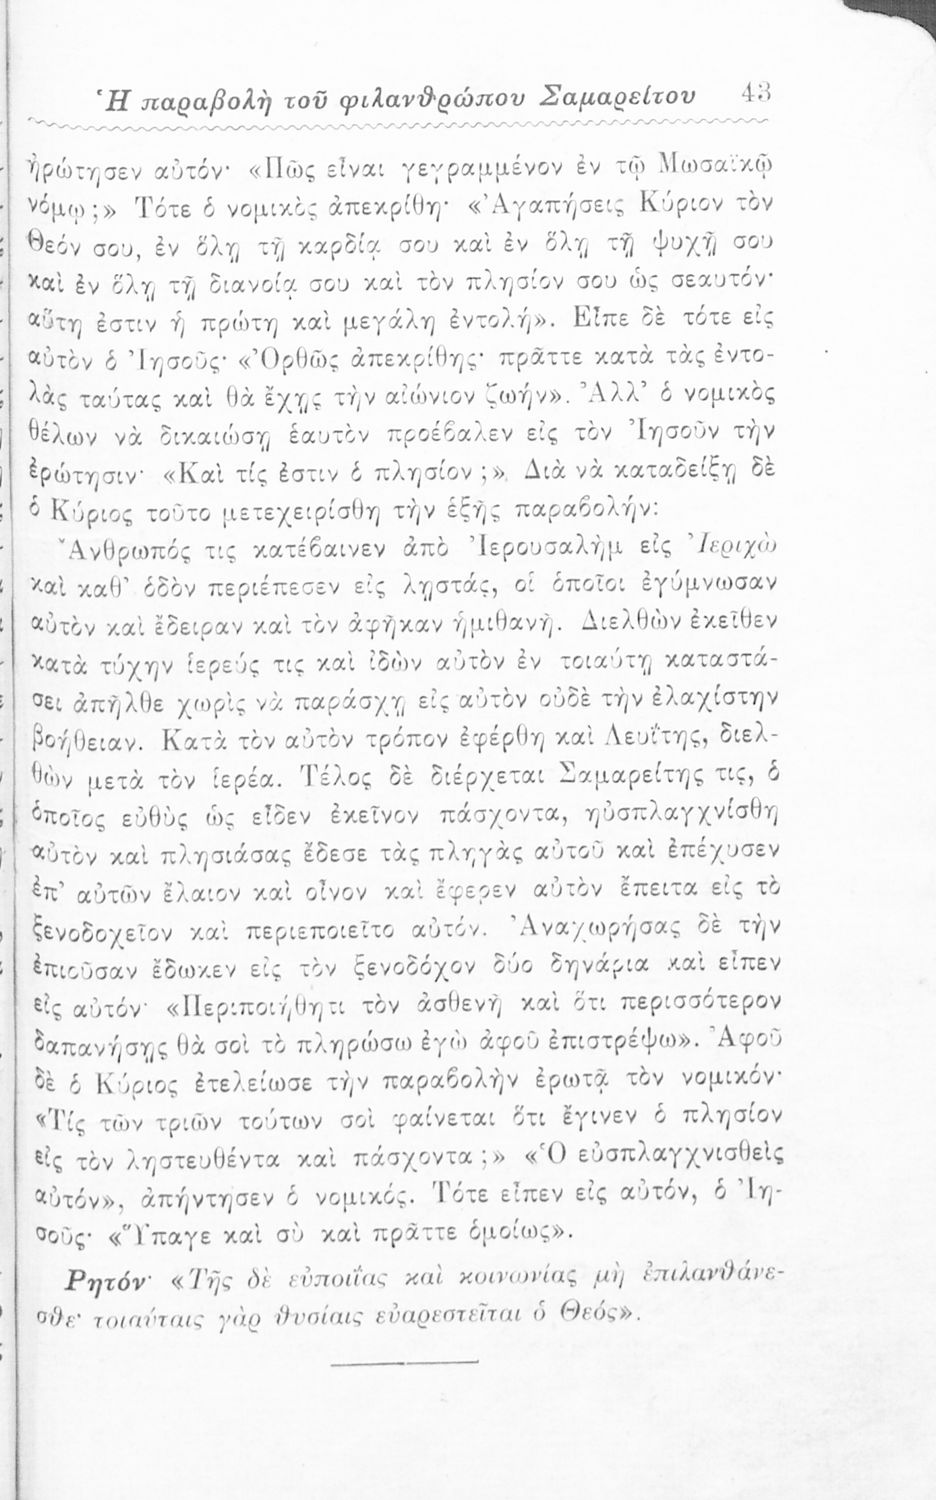 Ἡ παραβολὴ τοῦ φιλανθρώπου Σαμαρείτου 43
ἠρώτησεν αὐτόν· «Πῶς εἶναι γεγραμμένον ἐν τῷ Μωσαϊκῷ
νόμῳ;» Τότε ὁ νομικὸς ἀπεκρίθη· «Ἀγαπήσεις Κύριον τὸν
Θεόν σου, ἐν ὅλῃ τῇ καρδίᾳ σου καὶ ἐν ὅλῃ τῇ ψυχῇ σου
καὶ ἐν ὅλῃ τῇ διανοίᾳ σου καὶ τὸν πλησίον σου ὡς σεαυτόν·
αὕτη ἐστιν ἡ πρώτη καὶ μεγάλη ἐντολή». Εἶπε δὲ τότε εἰς
αὐτὸν ὁ Ἰησοῦς· «Ὀρθῶς ἀπεκρίθης· πρᾶττε κατὰ τὰς ἐντο-
λὰς ταύτας καὶ θὰ ἔχῃς τὴν αἰώνιον ζωήν». Ἀλλ’ ὁ νομικὸς
θέλων νὰ δικαιώσῃ ἑαυτὸν προέβαλεν εἰς τὸν Ἰησοῦν τὴν
ἐρώτησιν· «Καὶ τίς ἐστιν ὁ πλησίον;» Διὰ νὰ καταδείξῃ δὲ
ὁ Κύριος τοῦτο μετεχειρίσθη τὴν ἑξῆς παραβολήν:
Ἄνθρωπός τις κατέβαινεν ἀπὸ Ἰερουσαλὴμ εἰς Ἰεριχὼ
καὶ καθ’ ὁδὸν περιέπεσεν εἰς λῃστάς, οἱ ὁποῖοι ἐγύμνωσαν
αὐτὸν καὶ ἔδειραν καὶ τὸν ἀφῆκαν ἡμιθανῆ. Διελθὼν ἐκεῖθεν
κατὰ τύχην ἱερεύς τις καὶ ἰδὼν αὐτὸν ἐν τοιαύτῃ καταστά-
σει ἀπῆλθε χωρὶς νὰ παράσχῃ εἰς αὐτὸν οὐδὲ τὴν ἐλαχίστην
βοήθειαν. Κατὰ τὸν αὐτὸν τρόπον ἐφέρθη καὶ Λευΐτης, διελ-
θὼν μετὰ τὸν ἱερέα. Τέλος δὲ διέρχεται Σαμαρείτης τις, ὁ
ὁποῖος εὐθὺς ὡς εἶδεν ἐκεῖνον πάσχοντα, ηὐσπλαγχνίσθη
αὐτὸν καὶ πλησιάσας ἔδεσε τὰς πληγὰς αὐτοῦ καὶ ἐπέχυσεν
ἐπ’ αὐτῶν ἔλαιον καὶ οἶνον καὶ ἔφερεν αὐτὸν ἔπειτα εἰς τὸ
ξενοδοχεῖον καὶ περιεποιεῖτο αὐτόν. Ἀναχωρήσας δὲ τὴν
ἐπιοῦσαν ἔδωκεν εἰς τὸν ξενοδόχον δύο δηνάρια καὶ εἶπεν
εἰς αὐτόν· «Περιποιήθητι τὸν ἀσθενῆ καὶ ὅτι περισσότερον
δαπανήσῃς θὰ σοὶ τὸ πληρώσω ἐγὼ ἀφοῦ ἐπιστρέψω». Ἀφοῦ
δὲ ὁ Κύριος ἐτελείωσε τὴν παραβολὴν ἐρωτᾷ τὸν νομικόν·
«Τίς τῶν τριῶν τούτων σοὶ φαίνεται ὅτι ἔγινεν ὁ πλησίον
εἰς τὸν λῃστευθέντα καὶ πάσχοντα;» «Ὁ εὐσπλαγχνισθεὶς
αὐτόν», ἀπήντησεν ὁ νομικός. Τότε εἶπεν εἰς αὐτόν, ὁ Ἰη-
σοῦς· «Ὕπαγε καὶ σὺ καὶ πρᾶττε ὁμοίως».
Ρητόν· «Τῆς δὲ εὐποιΐας καὶ κοινωνίας μὴ ἐπιλανθάνε-
σθε· τοιαύταις γὰρ θυσίαις εὐαρεστεῖται ὁ Θεός».